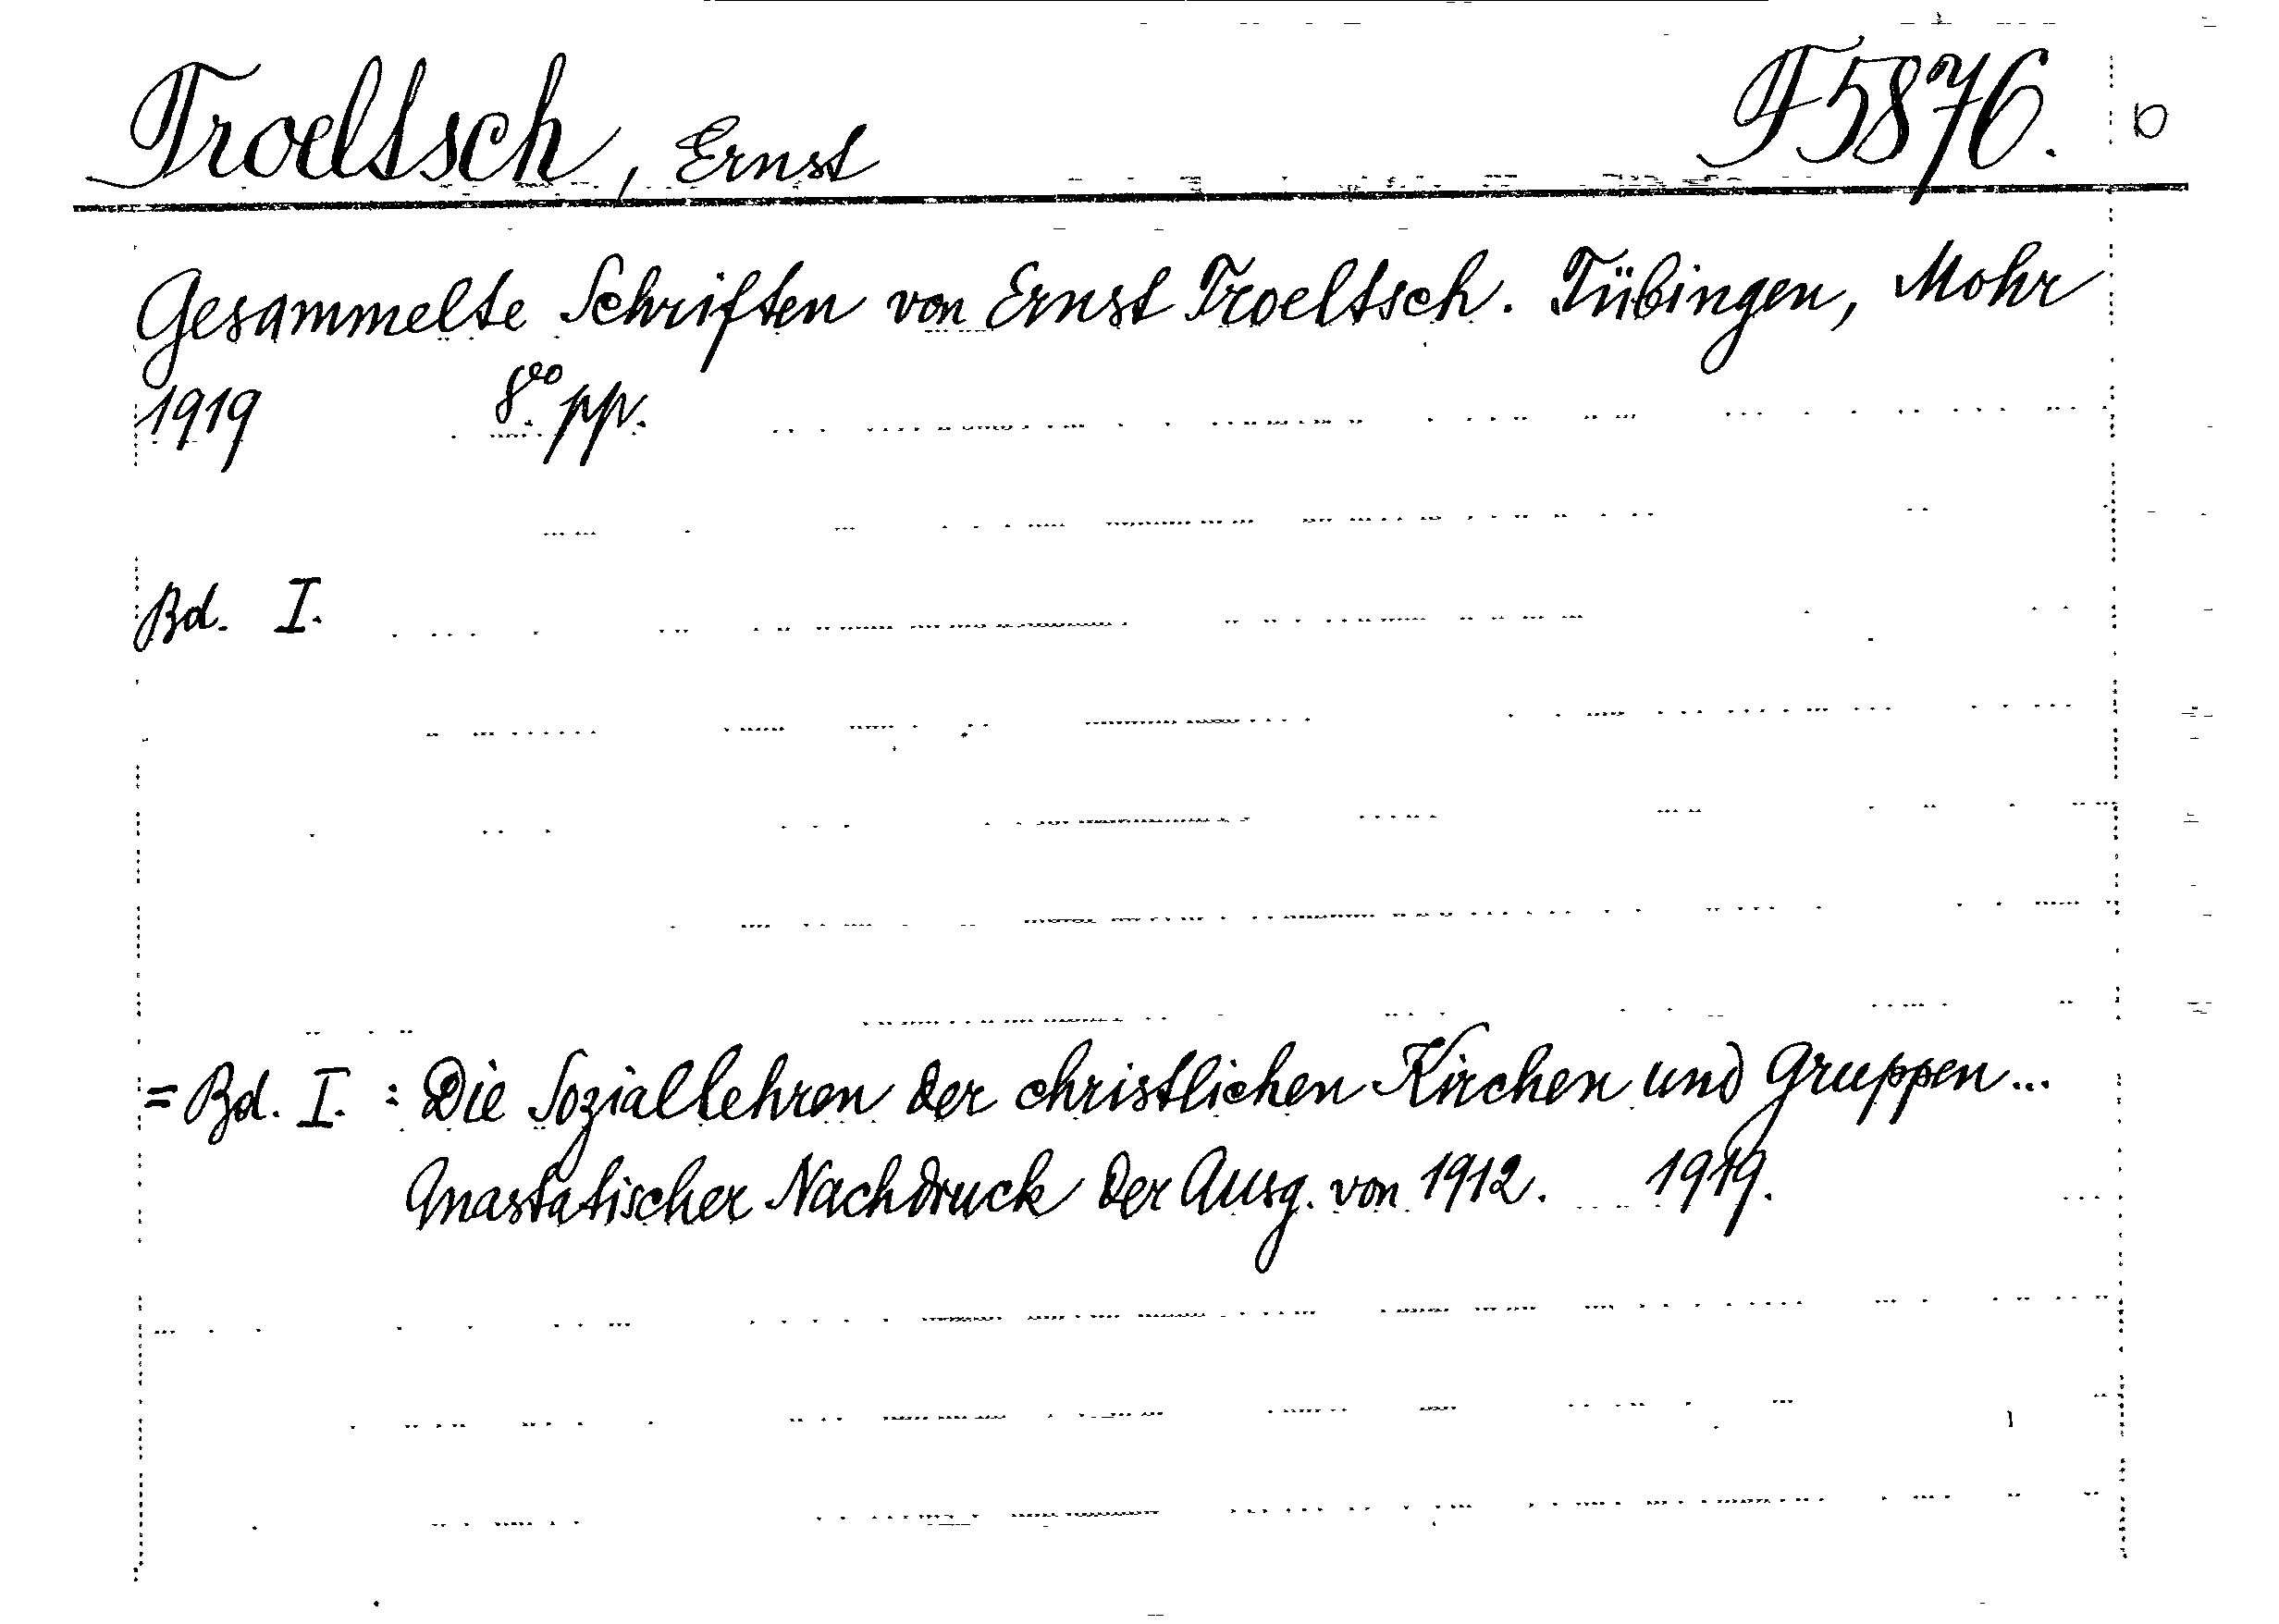 Troeltsch, Ernst F5876. D
Gesammelte Schriften von Ernst Troeltsch. Tübingen, Mohr
1919 8vo pp.
Bd. I.
= Bd. I. : Die Soziallehren der christlichen Kirchen und Gruppen...
Anastatischer Nachdruck der Ausg. von 1912. 1919.